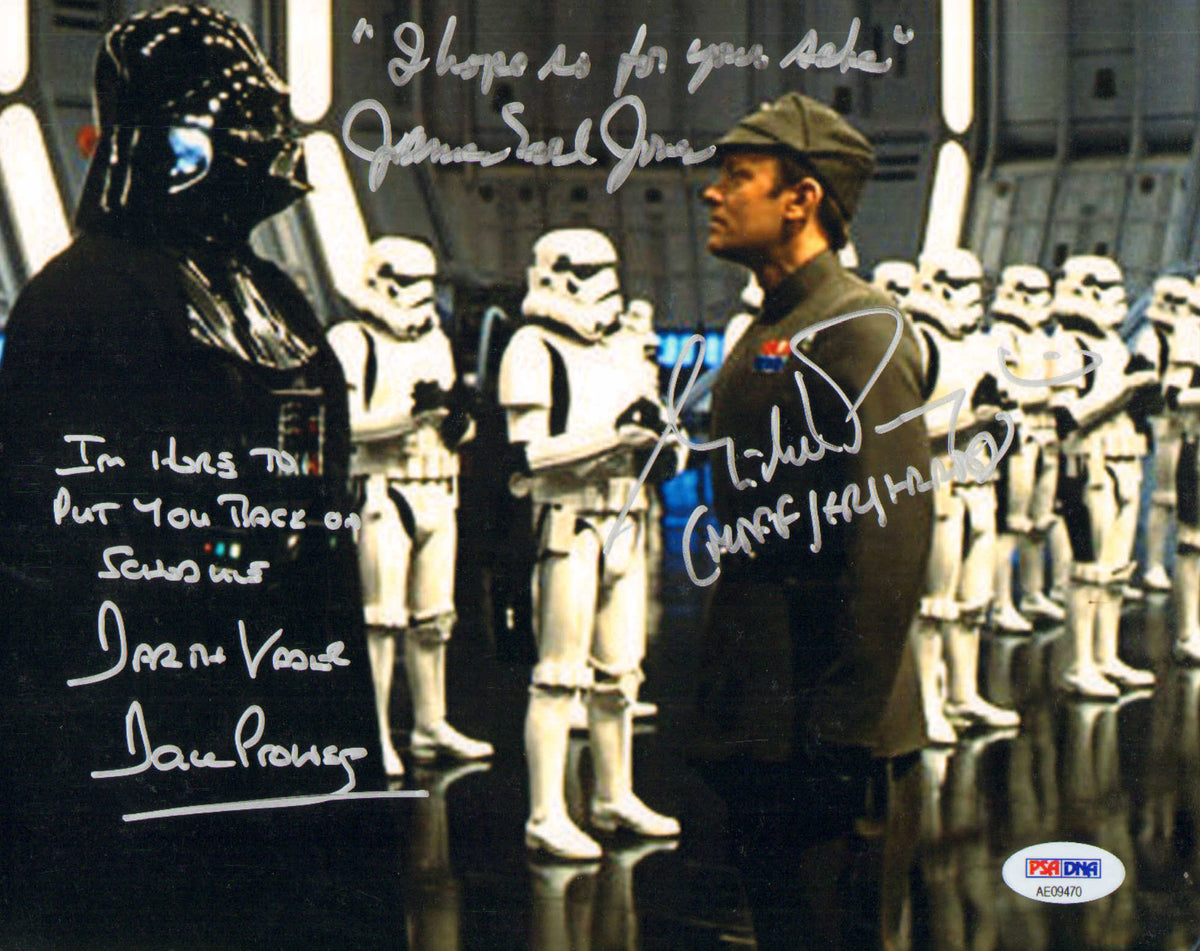 "I hope so for your sake"
James Earl Jones
Michael P
(MOFF JERJERROD)
I'm HERE TO
PUT YOU BACK ON
SCHEDULE
DARTH VADER
Dave Prowse
PSA DNA
AE09470